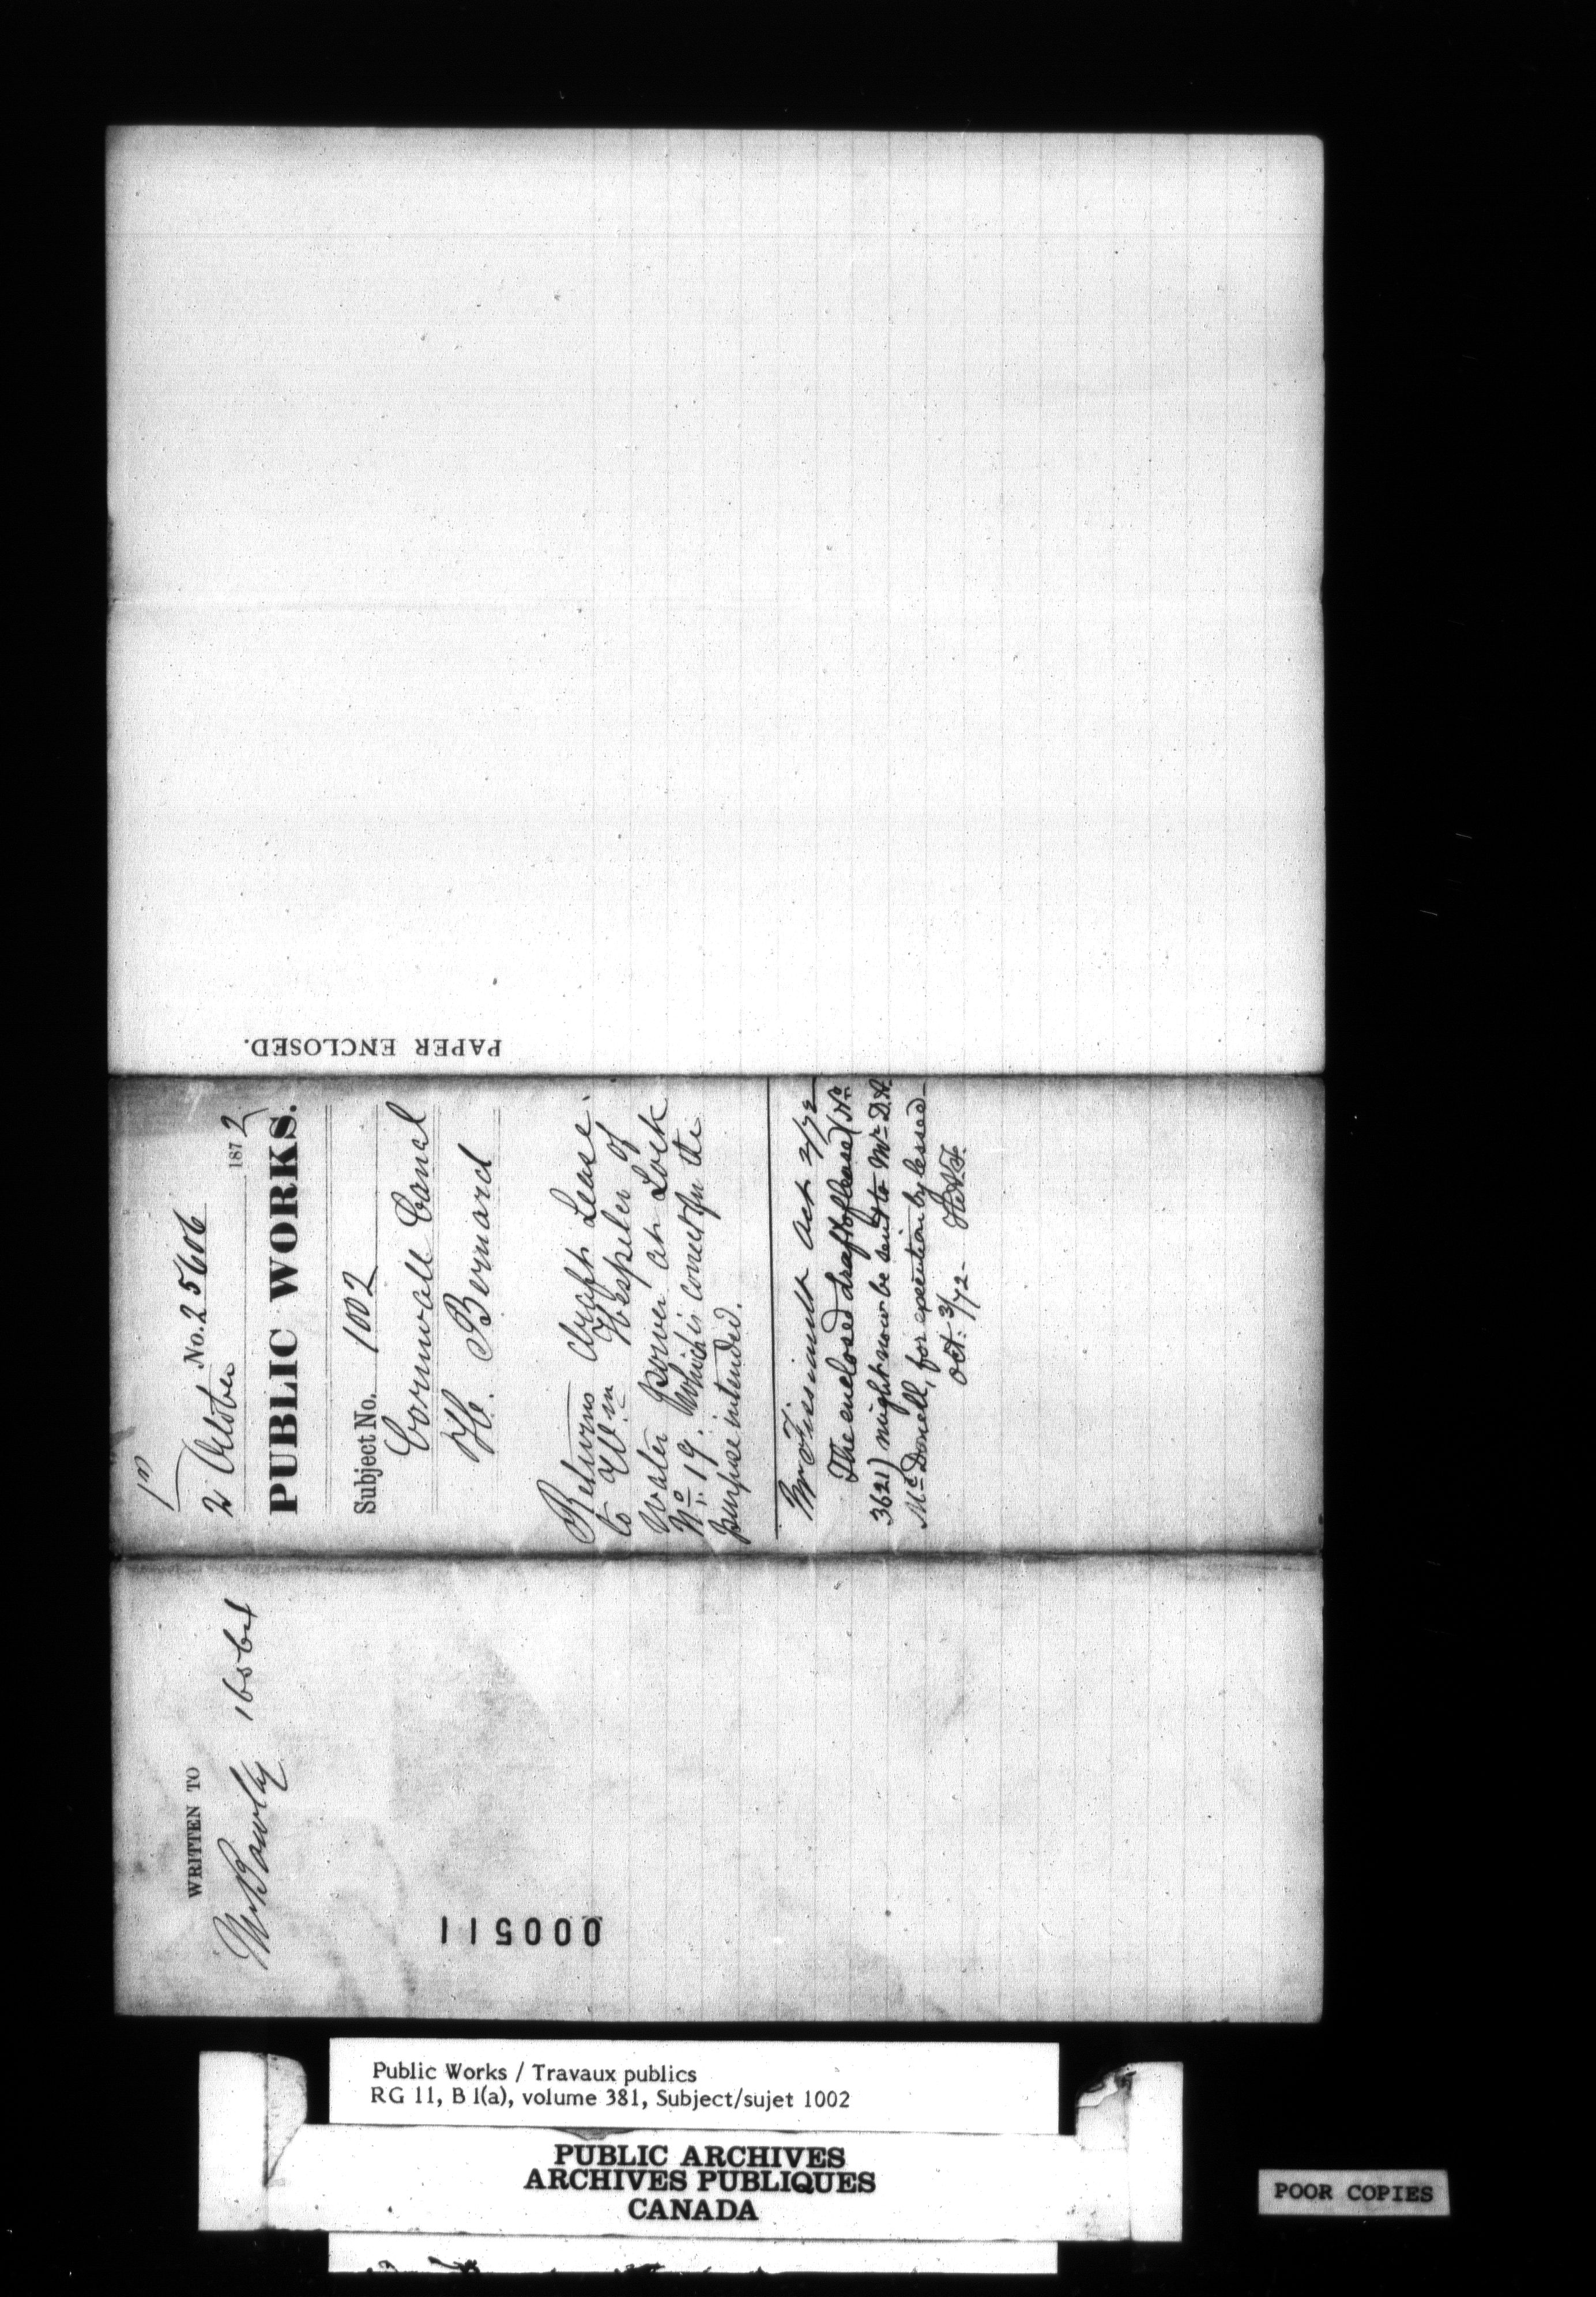 PAPER ENCLOSED.
No. 25606
2 October 1872
PUBLIC WORKS.
Subject No. 1002
Cornwall Canal
H. Bernard
Returns draft Lease
to Wm Hespeler of
Water Power at Lock
No. 19. which is correct for the
purpose intended.
Mr Trudeau Oct 2/72
The enclosed draft of lease (No.
3621) might now be sent to Mr. D. A.
McDonell, for execution by lessee
Oct: 3/72-
WRITTEN TO
000511
Public Works / Travaux publics
RG 11, B 1(a), volume 381, Subject/sujet 1002
PUBLIC ARCHIVES
ARCHIVES PUBLIQUES
CANADA
POOR COPIES